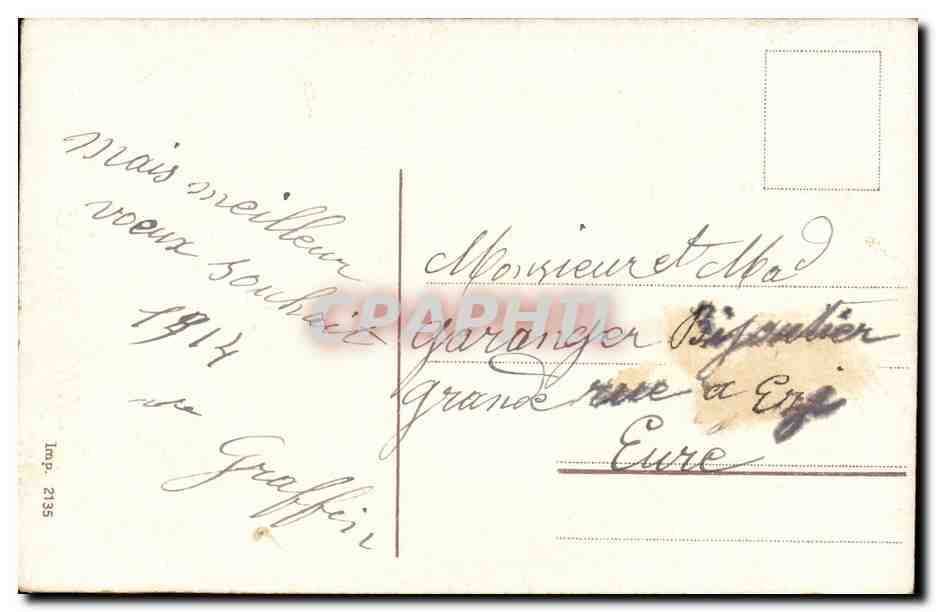 mais meilleur
voeux souhait
1914
Graffin
Imp. 2135
Monsieur et Mad
garanger Bijoutier
grande rue a Ezy
Eure
CPAPHIL